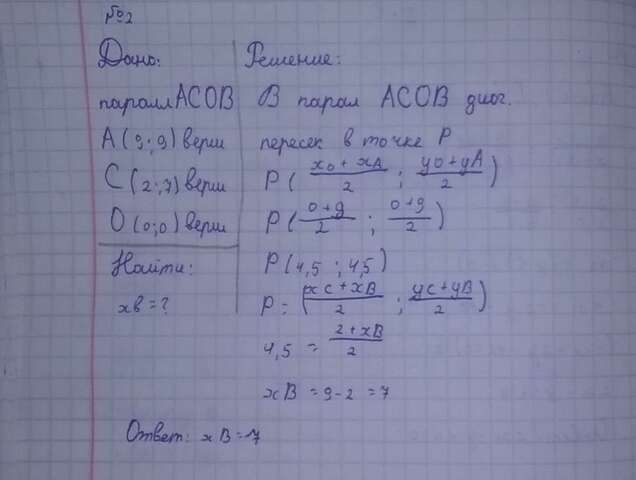 №2
Дано:
паралл ACOB
A(9;9) верш
C(2;7) верш
O(0;0) верш
Найти:
xв=?
Решение:
В парал ACOB диог.
пересек в точке P
P( xo+xA/2 ; yo+yA/2 )
P( 0+9/2 ; 0+9/2 )
P(4,5 ; 4,5)
P = ( xc+xB/2 ; yc+yB/2 )
4,5 = 2+xB/2
xB = 9-2 = 7
Ответ: xB=7